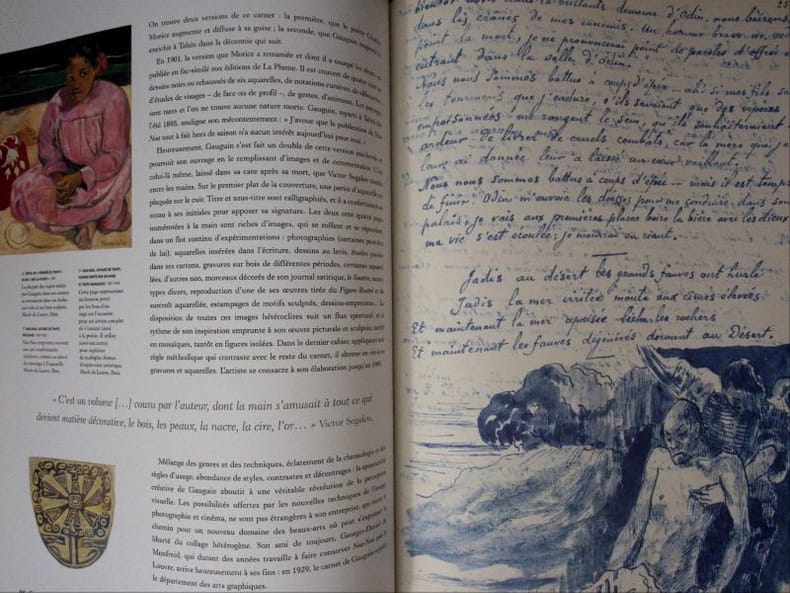 On trouve deux versions de ce carnet : la première, que le poète Charles
Morice augmente et diffuse à sa guise ; la seconde, que Gauguin
enrichit à Tahiti dans la décennie qui suit.
En 1901, la version que Morice a remaniée et dont il a
publiée en fac-similé aux éditions de La Plume. Il est couvert de quatre-
dessins noirs ou rehaussés de six aquarelles, de notations cursives, de
d'études de visages – de face ou de profil –, de gestes, d'animaux. Les paysages
sont rares et l'on ne trouve aucune nature morte. Gauguin, reparti à Tahiti
l'été 1895, souligne son mécontentement : « J'avoue que la publication de Noa
Noa tout à fait hors de saison n'a aucun intérêt aujourd'hui pour moi. »
Heureusement, Gauguin s'est fait un double de cette version
poursuit son ouvrage en le remplissant d'images et de commentaires. C'est
celui-là même, laissé dans sa case après sa mort, que Victor Segalen
entre les mains. Sur le premier plat de la couverture, une partie d'aquarelle est
plaquée sur le cuir. Titre et sous-titre sont calligraphiés, et il a
sceau à ses initiales pour apposer sa signature. Les deux cent quatre pages
numérotées à la main sont riches d'images, qui se mêlent et se répondent
dans un flot continu d'expérimentations : photographies (certaines peut-être
de lui), aquarelles insérées dans l'écriture, dessins au lavis, études puisées
dans ses cartons, gravures sur bois de différentes périodes, certaines
d'autres non, morceaux découpés de son journal satirique, le Sourire,
types divers, reproduction d'une de ses œuvres tirée du Figaro illustré et
surcroît aquarellée, estampages de motifs sculptés, dessins-empreintes... La
disposition de toutes ces images hétéroclites suit un flux spontané, et
rythme de son inspiration emprunte à son œuvre picturale et sculptée, tantôt
en mosaïques, tantôt en figures isolées. Dans le dernier cahier, appliquant une
règle méthodique qui contraste avec le reste du carnet, il alterne en vis-à-vis
gravures et aquarelles. L'artiste se consacre à son élaboration jusqu'en
« C'est un volume [...] cousu par l'auteur, dont la main s'amusait à tout ce qui
devient matière décorative, le bois, les peaux, la nacre, la cire, l'or... » Victor Segalen.
Mélange des genres et des techniques, éclatement de la chronologie et des
règles d'usage, abondance de styles, contrastes et décentrages : la spontanéité
créative de Gauguin aboutit à une véritable révolution de la perception
visuelle. Les possibilités offertes par les nouvelles techniques de l'image,
photographie et cinéma, ne sont pas étrangères à son entreprise, qui ouvre le
chemin pour un nouveau domaine des beaux-arts où peut s'exprimer la
liberté du collage hétérogène. Son ami de toujours, Georges-Daniel de
Monfreid, qui durant des années travailla à faire conserver Noa Noa par le
Louvre, arrive heureusement à ses fins : en 1929, le carnet de Gauguin rejoint
le département des arts graphiques.
dans les crânes de mes ennemis. Un homme brave ne
point la mort ; je ne prononcerai point de paroles d'effroi en
entrant dans la salle d'Odin.
Nous nous sommes battus à coups d'épée — ah ! si mes fils
les tourments que j'endure, s'ils savaient que des vipères
empoisonnées me rongent le sein, qu'ils souhaiteraient
ardeur de livrer de cruels combats, car la mère que je
leur ai donnée leur a laissé un cœur vaillant.
Nous nous sommes battus à coups d'épée — mais il est temps
de finir. Odin m'envoie les déesses pour me conduire dans son
palais ; je vais aux premières places boire la bière avec les dieux
ma vie s'est écoulée ; je mourrai en riant.
Jadis au désert les grands fauves ont hurlé
Jadis la mer irritée monta aux cimes élevées
Et maintenant la mer apaisée lèche les rochers
Et maintenant les fauves dorment au Désert.